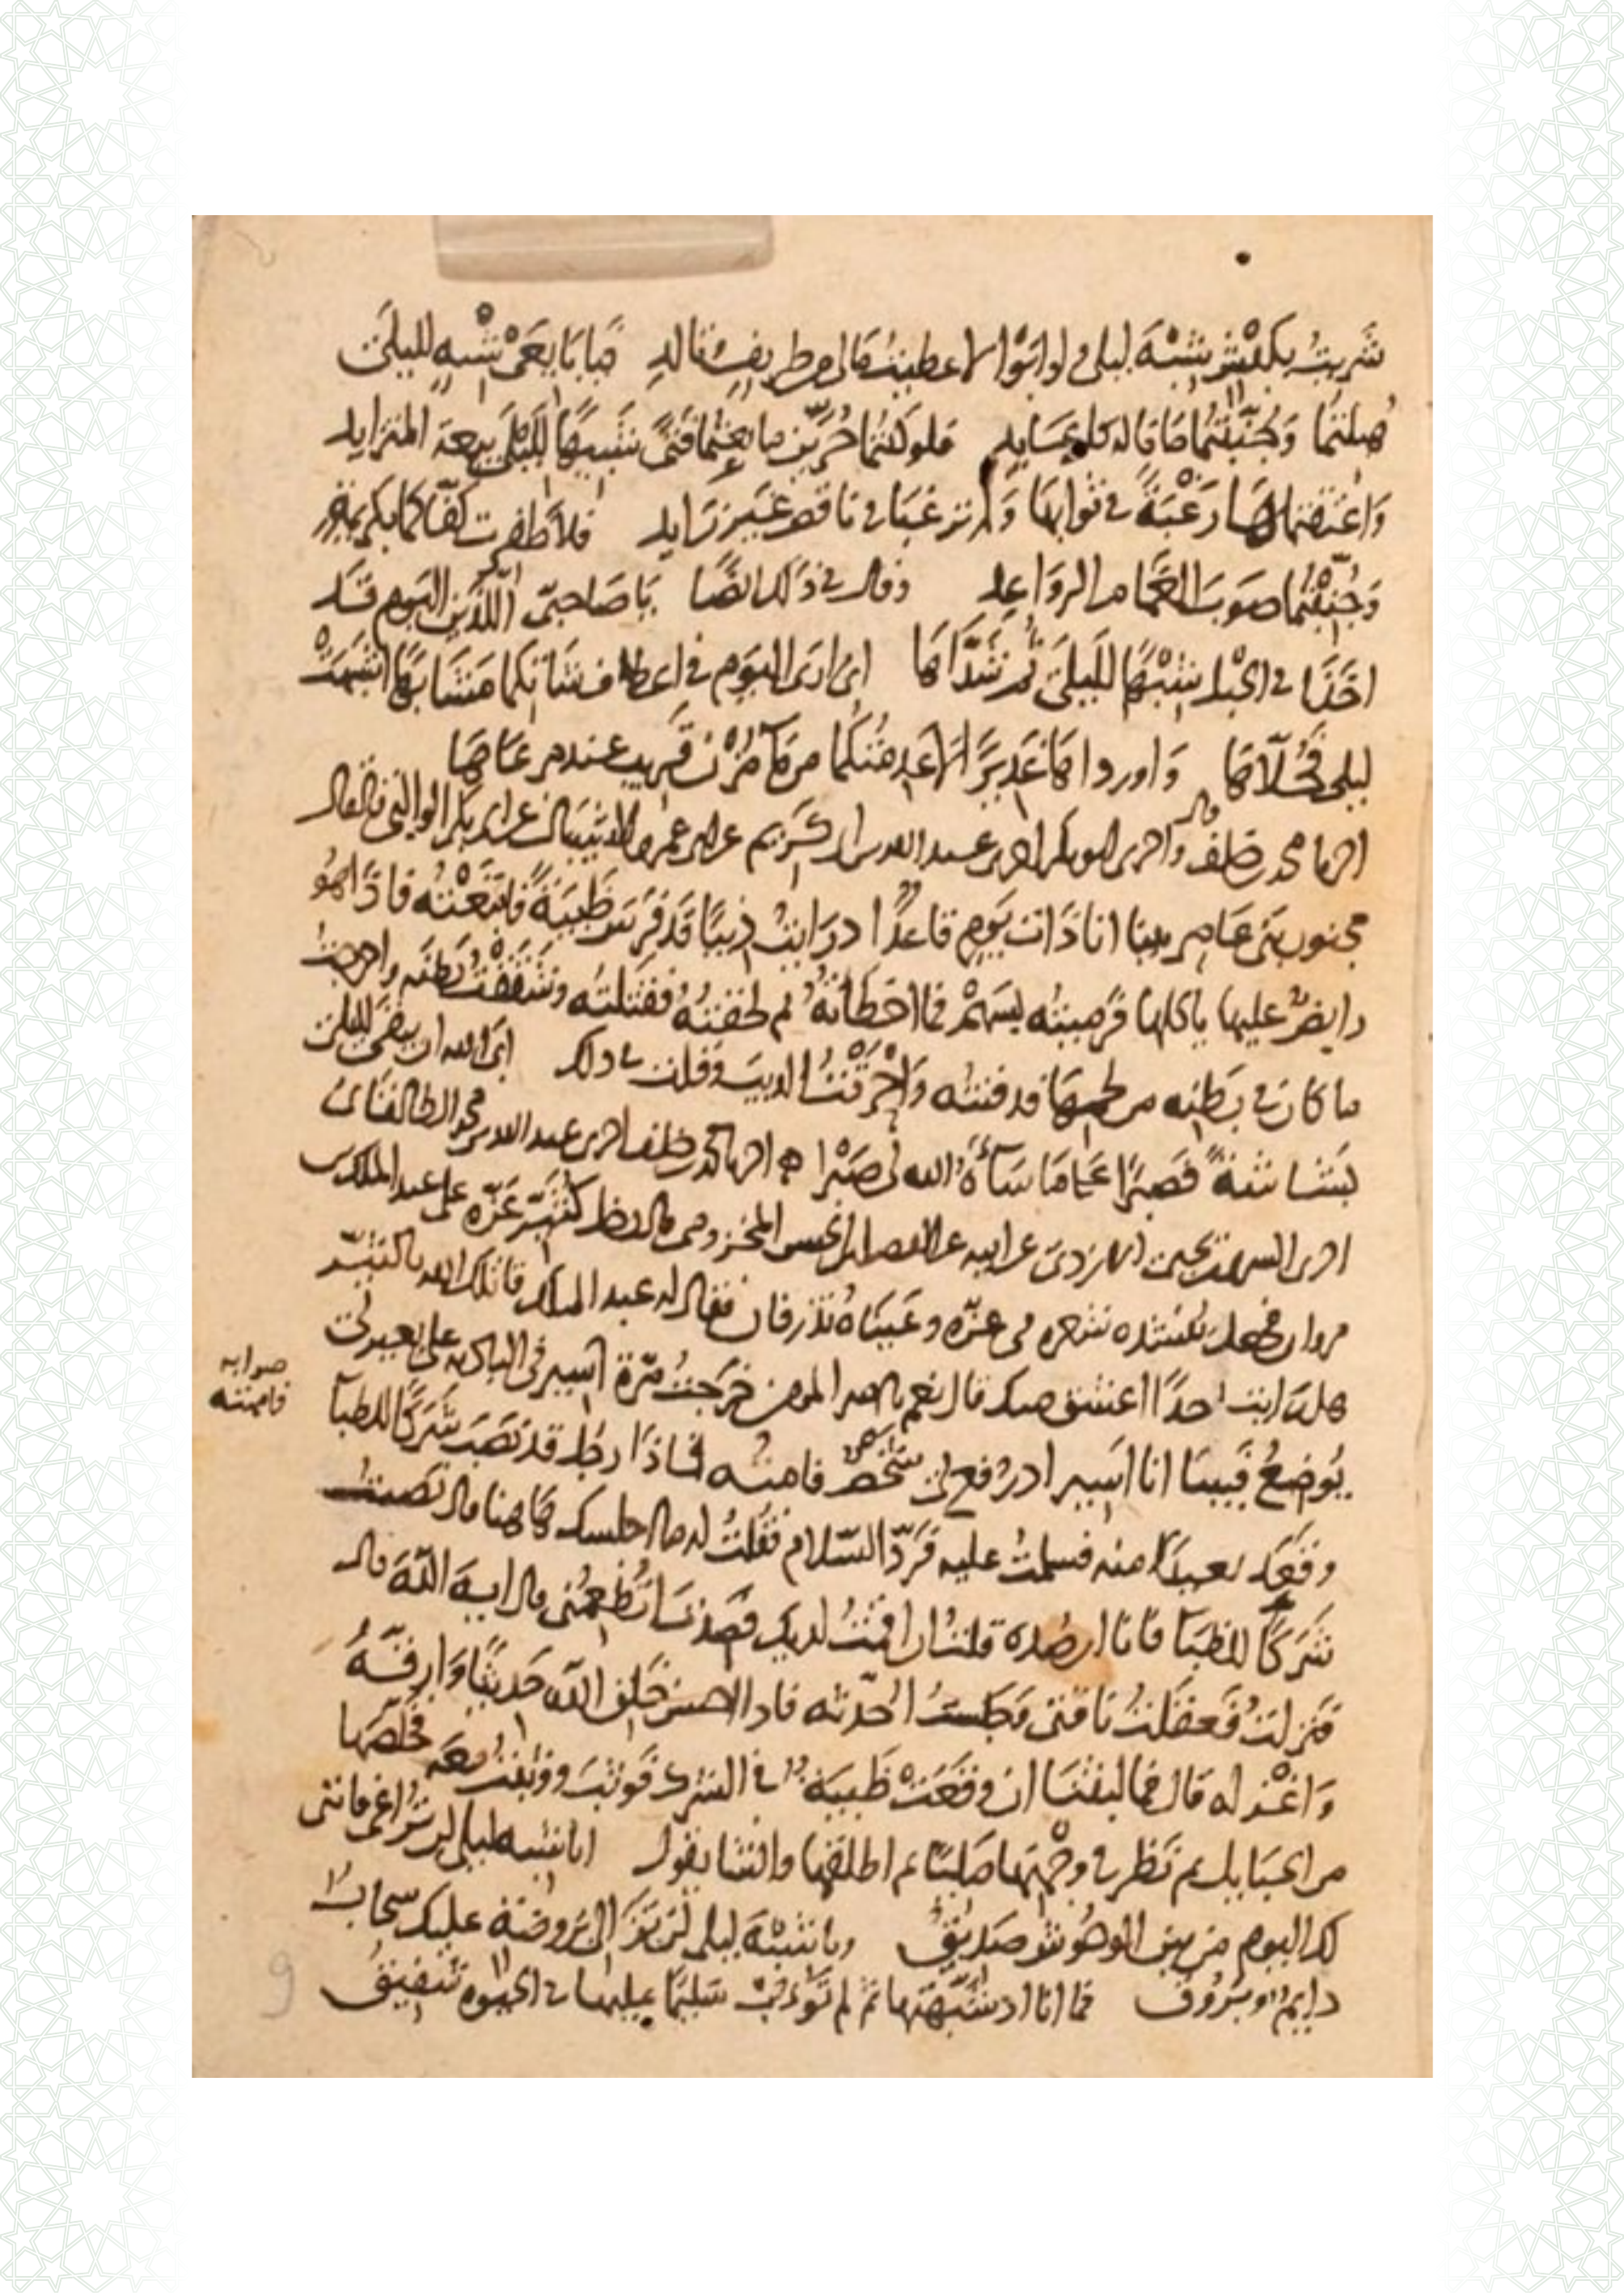 شَريتُ بكبْشٍ شِبْهَ ليلى ولو ابَوْا لاعطيتُ مالي من طريفٍ وتالدِ فيا بايعَيْ شبهٍ لليلَى
هُبلتما وجُنّبتُما ما قاله كل عَايدِ فلو كنتُما حُرّين ما بعتُما فتىً شبيهًا لليلَى بيعة المتزايد
وَاعتقتماها رَغْبَةً في ثوابها وَلم ترغبا في ناقص غَير زَايد فلا ظفرت كفّاكما بكريمةٍ
وَجُنّبْتُما صَوبَ الغَمام الروَاعِدِ وقال في ذلك ايضًا يَا صَاحبىّ اللذين اليَوم قَد
اخَذا في الحبل شبْهًا لليلَى ثم شَدَّاهَا اني ارى اليَوم في اعطاف شاتكما مَشَابهًا اشبَهَتْ
ليلى فحُلّاهَا وَاوردا هَا غَديرًا لا عَدمتُكما من مَآ مُزْن قَريب عند مرعَاهَا
اخبرنا محمد بن خلف قال واخبرني ابو بكر اخبرني عبد الله بن ابي كريم عن ابي عمرو الشيباني عن ابي بكر الوالبي قال قال
مجنون بَني عَامر بينا انا ذَات يَوم قاعدًا اذ رَايتُ ذِيبًا قَد فَرَسَ ظَبيَةً فاتبَعْتُه فاذا هُو
رابضٌ عليها ياكلها فرَميتُه بسَهْم فما اخطاتُهُ ثم لحقتُهُ فقتلتُه وشَقَقْتُ بَطنَه واخرجتُ
ما كان في بَطنِه من لحمهَا فدفنته وَاحْرَقْتُ الذيبَ وقلت في ذلك ابَى الله ان يبقى لليلى
بَشاشةً فصَبرًا عَلى مَا سَآءهُ الله لي صَبْرا ۞ اخبرنا محمد بن خلف اخبرني عبد الله بن محمد الطالقاني
اخبرني السري بن يحيى الازدي عن ابيه عن المفضل بن الحسن المخزومي قال دخل كُثيّر عَزّه على عبد الملك بن
مروان فجعل يُنشده شعره في عزّه وعَينَاهُ تذرفان فقال له عبد الملك قاتلك الله يا كُثيّر
هل رَايت احدًا اعشق منك قال نعم يا امير المومنين خرَجتُ مَرّة اسير في الباديه على بعير لي
يُوضعُ فبينا انا اسير اذ رُفع لي شَخصٌ فامته فاذا رجل قد نصَبَ شَركًا للظبآ
وقعَد بعيدًا منه فسلمتُ عليه فَردّ السّلام فقلتُ له ما اجلسك هَاهنا قال نصبتُ
شَركًا للظبَآ فانا ارصُده قلت ان اقمتُ لديك فصدتَ اتُطعمُني قال اي وَاللهِ قال
فَنزلتُ فعقلتُ نَاقتي وَجلستُ اُحدّثه فاذا احسن خَلق الله حَديثًا وَارقّهُ
وَاغْزله قال فما لبثنَا ان وقعَتْ ظبيَةٌ في الشرك فَوثبَ ووثبتُ معَه فخلّصَها
من الحبَايل ثم نظر في وجْهها مَليًّا ثم اطلقها وانشا يقول ايا شبه ليلى لن تُراعي فانني
لك اليوم من بين الوحُوش صَديقُ ويا شبْهَ ليلى لن تزَالي بروضة عليك سحابٌ
دايمٌ وبُرُوقُ فما انا اذ شبّهتها ثم لم تَؤُبْ سَليمًا عليها في الحيوه شفيقُ
صوابه
فاممته